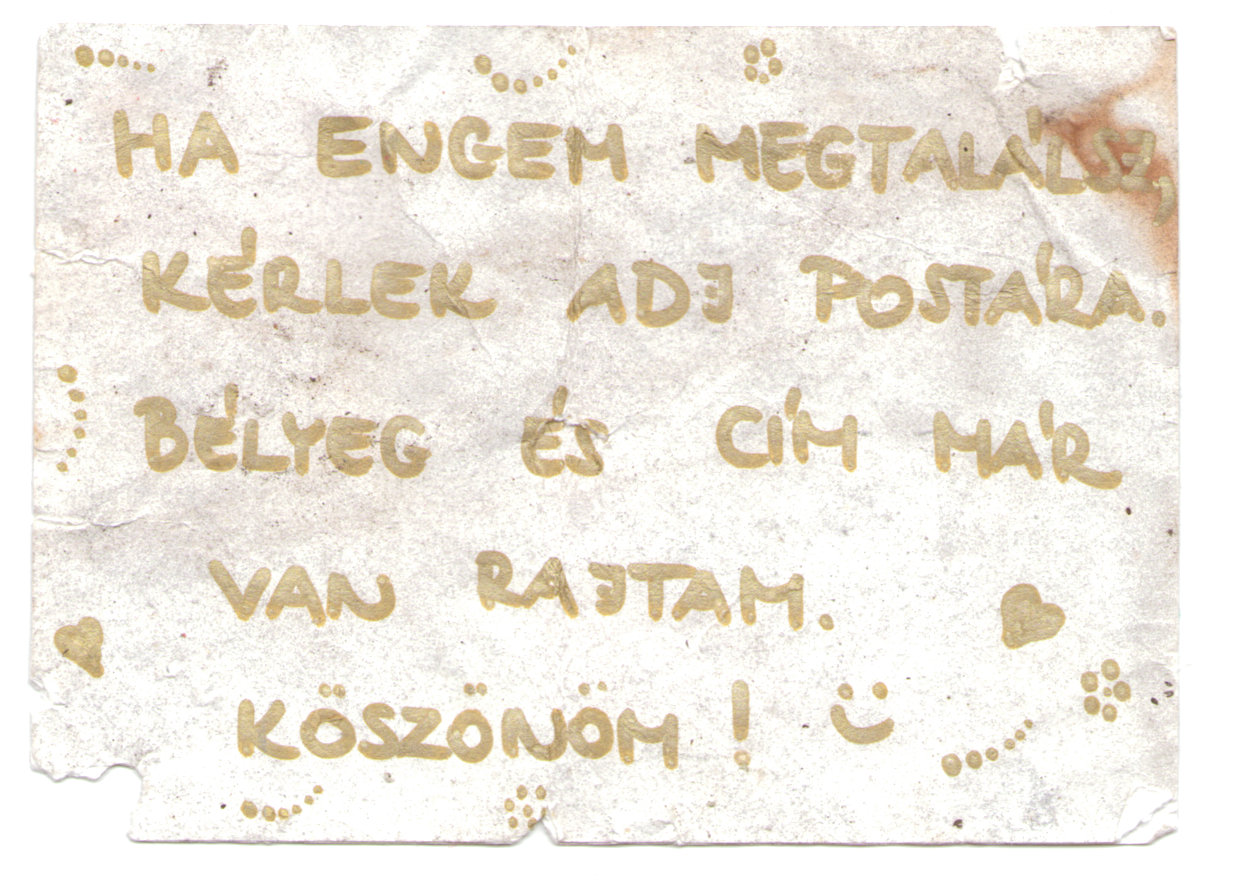 HA ENGEM MEGTALÁLSZ,
KÉRLEK ADJ POSTÁRA.
BÉLYEG ÉS CÍM MÁR
VAN RAJTAM.
KÖSZÖNÖM!